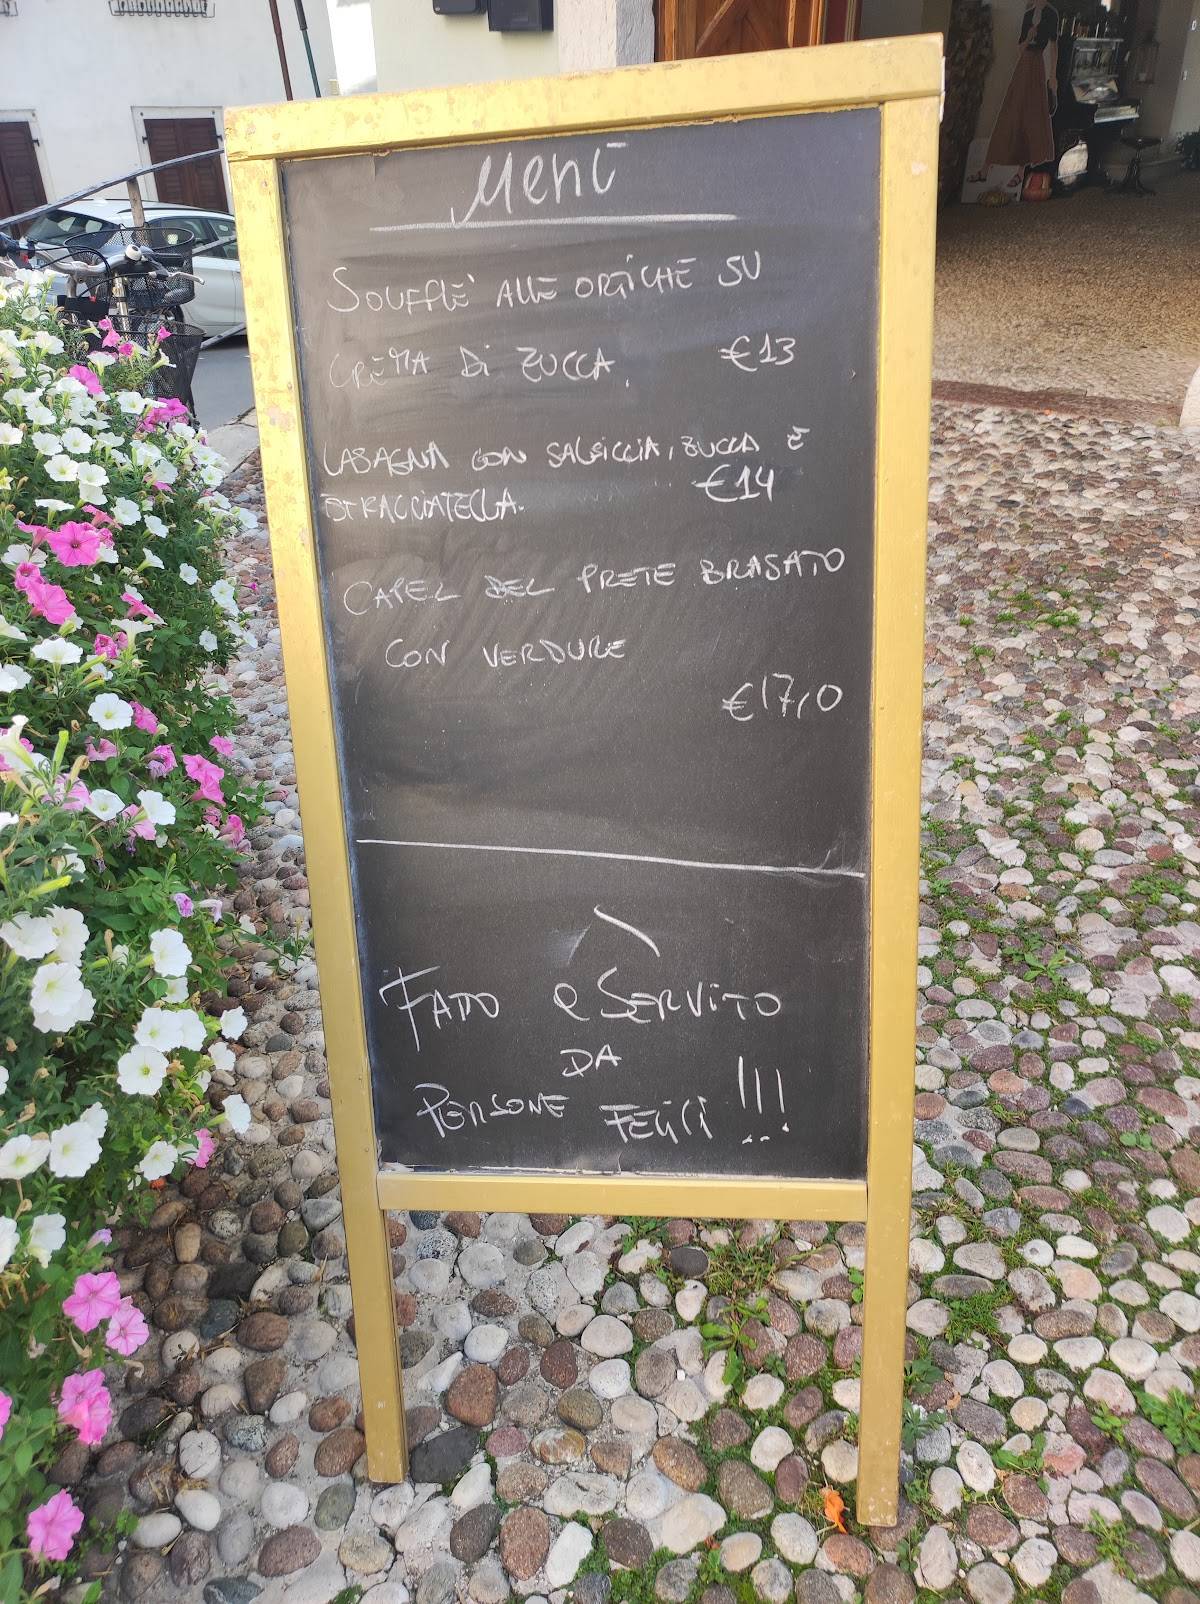 Menù
SOUFFLE' ALLE ORTICHE SU
CREMA DI ZUCCA. €13
LASAGNA CON SALSICCIA, ZUCCA E
STRACCIATELLA. €14
CAPEL DEL PRETE BRASATO
CON VERDURE
€17,0
FATTO e SERVITO
DA
PERSONE FELICI !!!